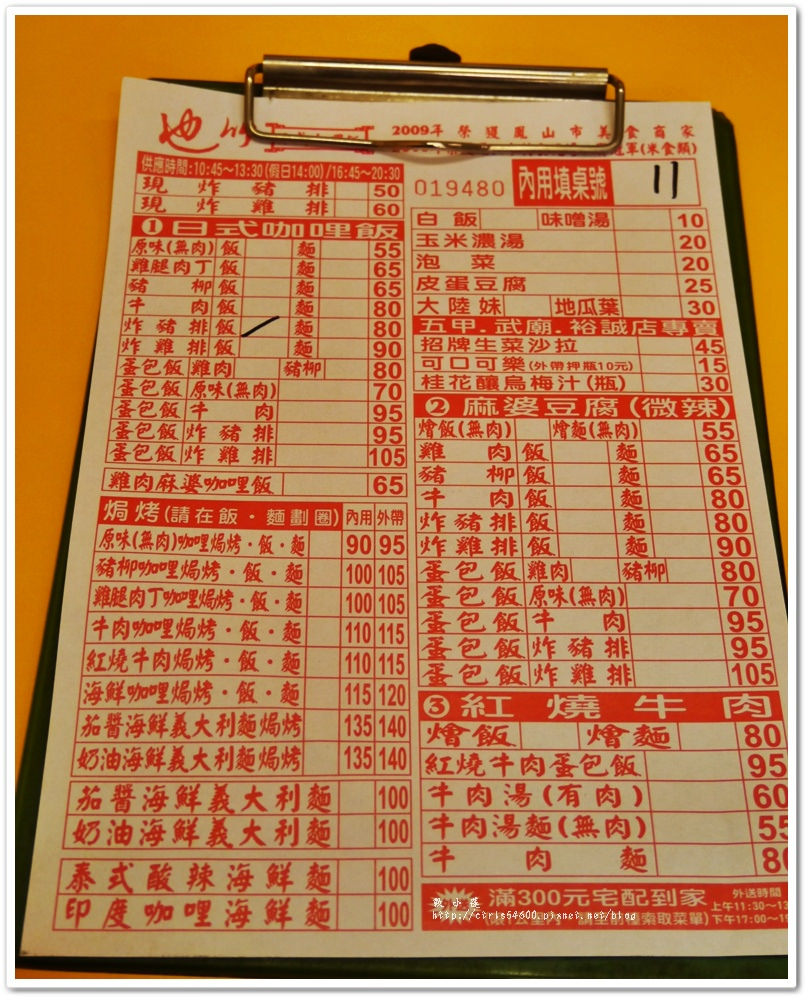 2009年榮獲鳳山市美食商家
冠軍(米食類)
供應時間:10:45~13:30(假日14:00)/16:45~20:30
現炸豬排 50
現炸雞排 60
019480 內用填桌號 11
❶日式咖哩飯
原味(無肉) 飯 麵 55
雞腿肉丁 飯 麵 65
豬柳 飯 麵 65
牛肉 飯 麵 80
炸豬排 飯 麵 80
炸雞排 飯 麵 90
蛋包飯 雞肉 豬柳 80
蛋包飯 原味(無肉) 70
蛋包飯 牛肉 95
蛋包飯 炸豬排 95
蛋包飯 炸雞排 105
雞肉麻婆咖哩飯 65
焗烤(請在飯‧麵劃圈) 內用 外帶
原味(無肉)咖哩焗烤‧飯‧麵 90 95
豬柳咖哩焗烤‧飯‧麵 100 105
雞腿肉丁咖哩焗烤‧飯‧麵 100 105
牛肉咖哩焗烤‧飯‧麵 110 115
紅燒牛肉焗烤‧飯‧麵 110 115
海鮮咖哩焗烤‧飯‧麵 115 120
茄醬海鮮義大利麵焗烤 135 140
奶油海鮮義大利麵焗烤 135 140
茄醬海鮮義大利麵 100
奶油海鮮義大利麵 100
泰式酸辣海鮮麵 100
印度咖哩海鮮麵 100
白飯 味噌湯 10
玉米濃湯 20
泡菜 20
皮蛋豆腐 25
大陸妹 地瓜葉 30
五甲.武廟.裕誠店專賣
招牌生菜沙拉 45
可口可樂(外帶押瓶10元) 15
桂花釀烏梅汁(瓶) 30
❷麻婆豆腐(微辣)
燴飯(無肉) 燴麵(無肉) 55
雞肉 飯 麵 65
豬柳 飯 麵 65
牛肉 飯 麵 80
炸豬排 飯 麵 80
炸雞排 飯 麵 90
蛋包飯 雞肉 豬柳 80
蛋包飯 原味(無肉) 70
蛋包飯 牛肉 95
蛋包飯 炸豬排 95
蛋包飯 炸雞排 105
❸紅燒牛肉
燴飯 燴麵 80
紅燒牛肉蛋包飯 95
牛肉湯(有肉) 60
牛肉湯麵(無肉) 55
牛肉麵 80
滿300元宅配到家
外送時間
上午11:30~13
下午17:00~19
http://ciris64600.pixnet.net/blog